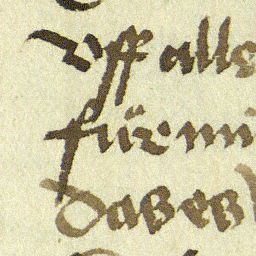 vff alls
für mi
das es